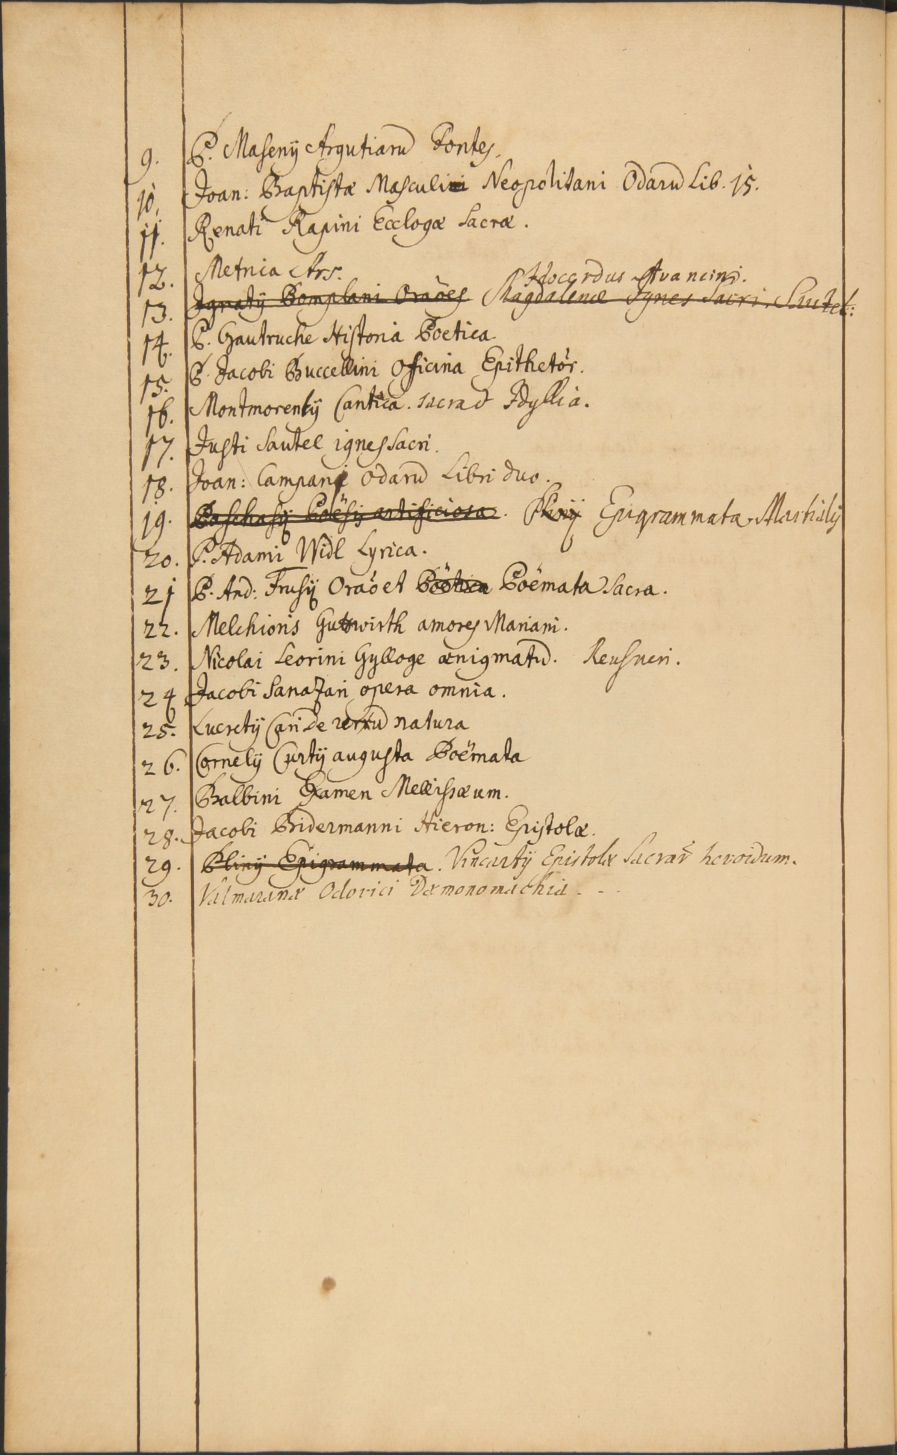 9. P. Masenÿ Argutiarū Fontes.
10. Joan: Baptistæ Masculini Neopolitani Odarū Lib. 15.
11. Renati Rapini Eclogæ Sacræ.
12. Metrica Ars.
Avancini.
13. Ignatÿ Bomplani Oraões Magdalenæ Ignes Sacri. Sautel:
14. P. Gautruche Historia Poetica
15. P. Jacobi Buccellini Officina Epithetōr.
16. Montmorencÿ Cantica sacra et Idyllia.
17. Justi Sautel ignes Sacri.
18. Joan: Campani Odarū Libri duo.
19. Paschasÿ Poësis artificiosa. Plinÿ Epigrammata Martialis
20. P. Adami Widl Lyrica.
21 P. And: Frusÿ Oraō et Poëtica Poëmata Sacra.
22. Melchioris Gutwirth amores Mariani.
23. Nicolai Leorini Sylloge ænigmatū. Reusneri.
24 Jacobi Sanazari opera omnia.
25. Lucretÿ Cari De rerum natura
26. Cornelÿ Curtÿ augusta Poëmata
27. Balbini Examen Melissæum.
28. Jacobi Bidermanni Hieron: Epistolæ.
29. Plinÿ Epigrammata. Vincartÿ Epistolæ Sacrar̄ heroidum.
30. Valmaranæ Odorici Dæmonomachia - - -